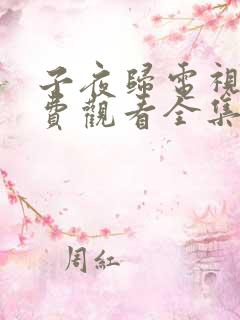 子夜歸電視
費觀看全集
周紅